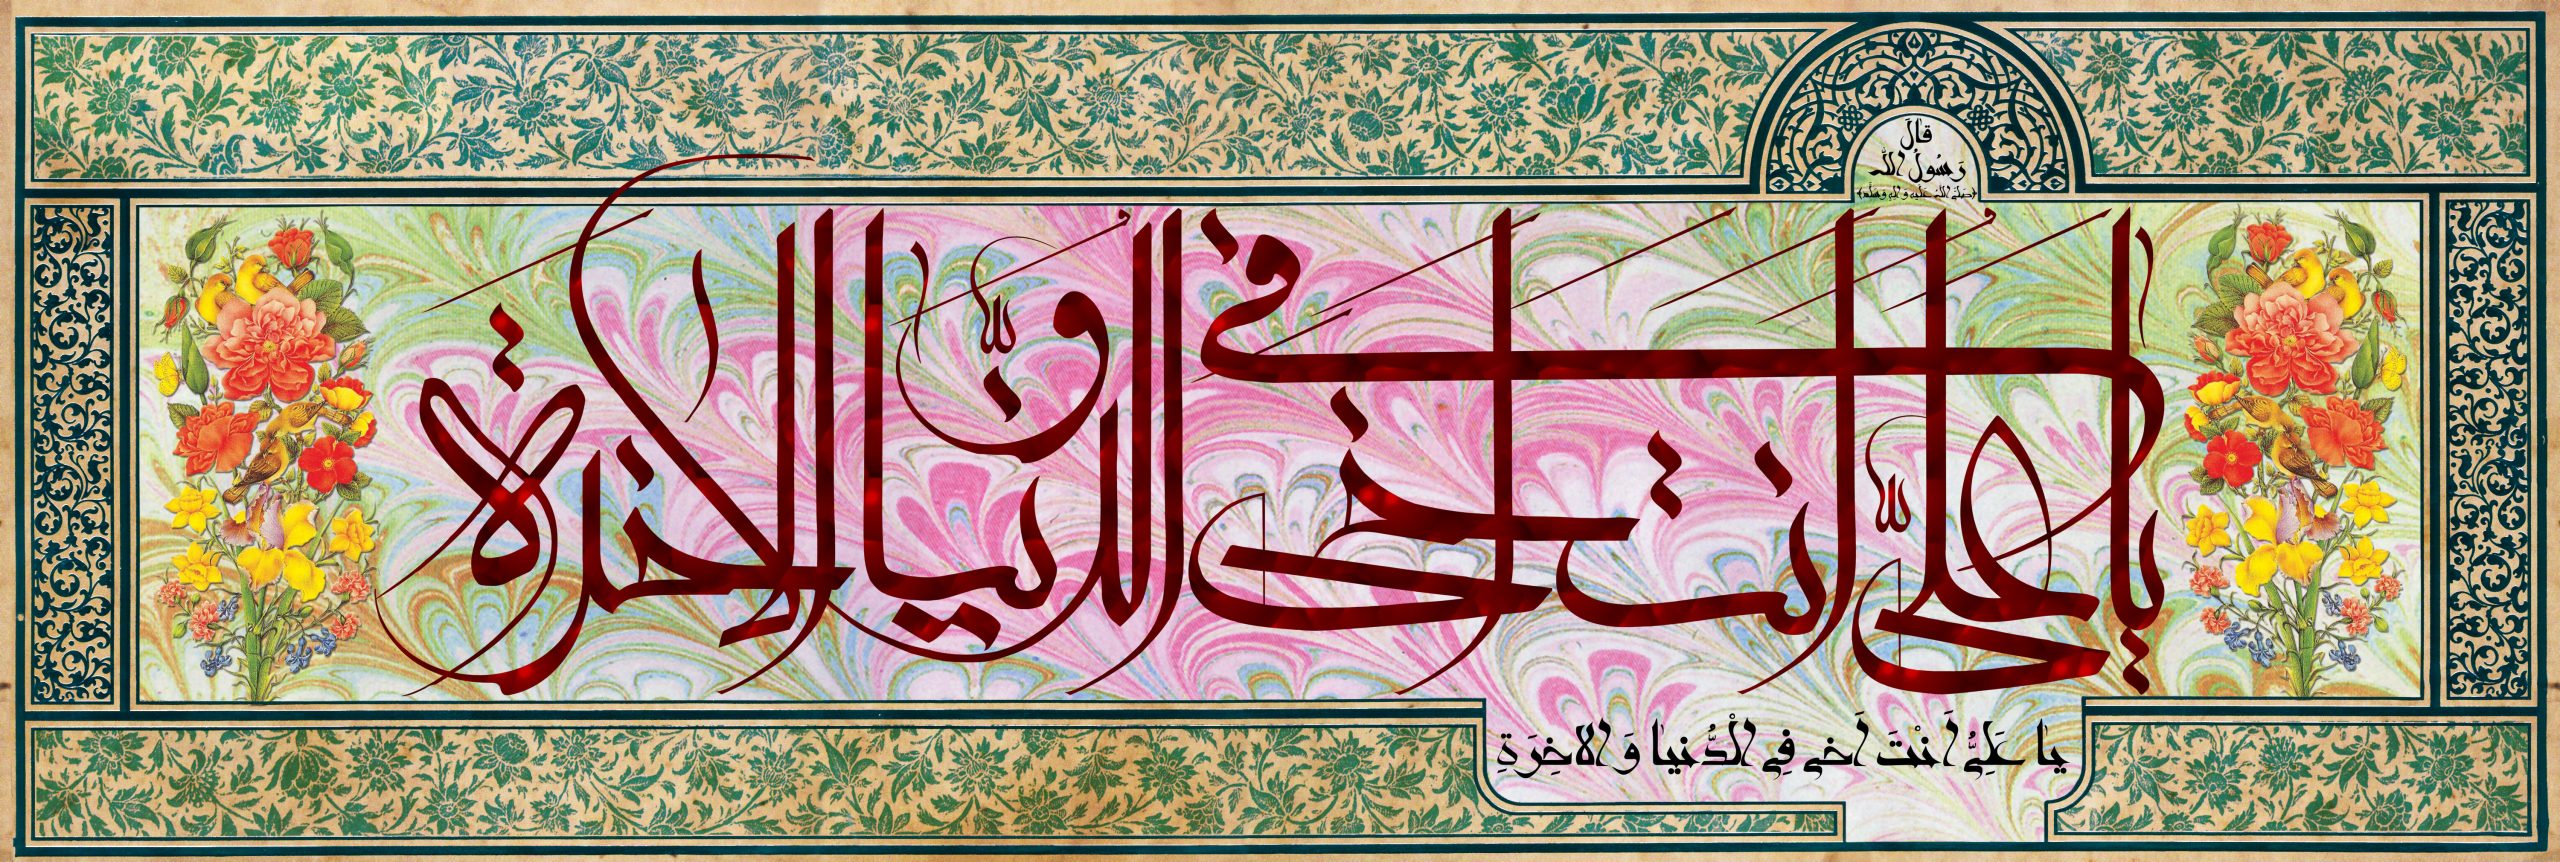 قالَ
رَسُولُ الله
(صَلَّی اللهُ عَلَیهِ وَ آلِهِ وَسَلَّم)
یا علی انت اخی فی الدنیا و الاخرة
یا عَلِیُّ اَنْتَ اَخی فِی الْدُّنیا وَ الاخِرَةِ